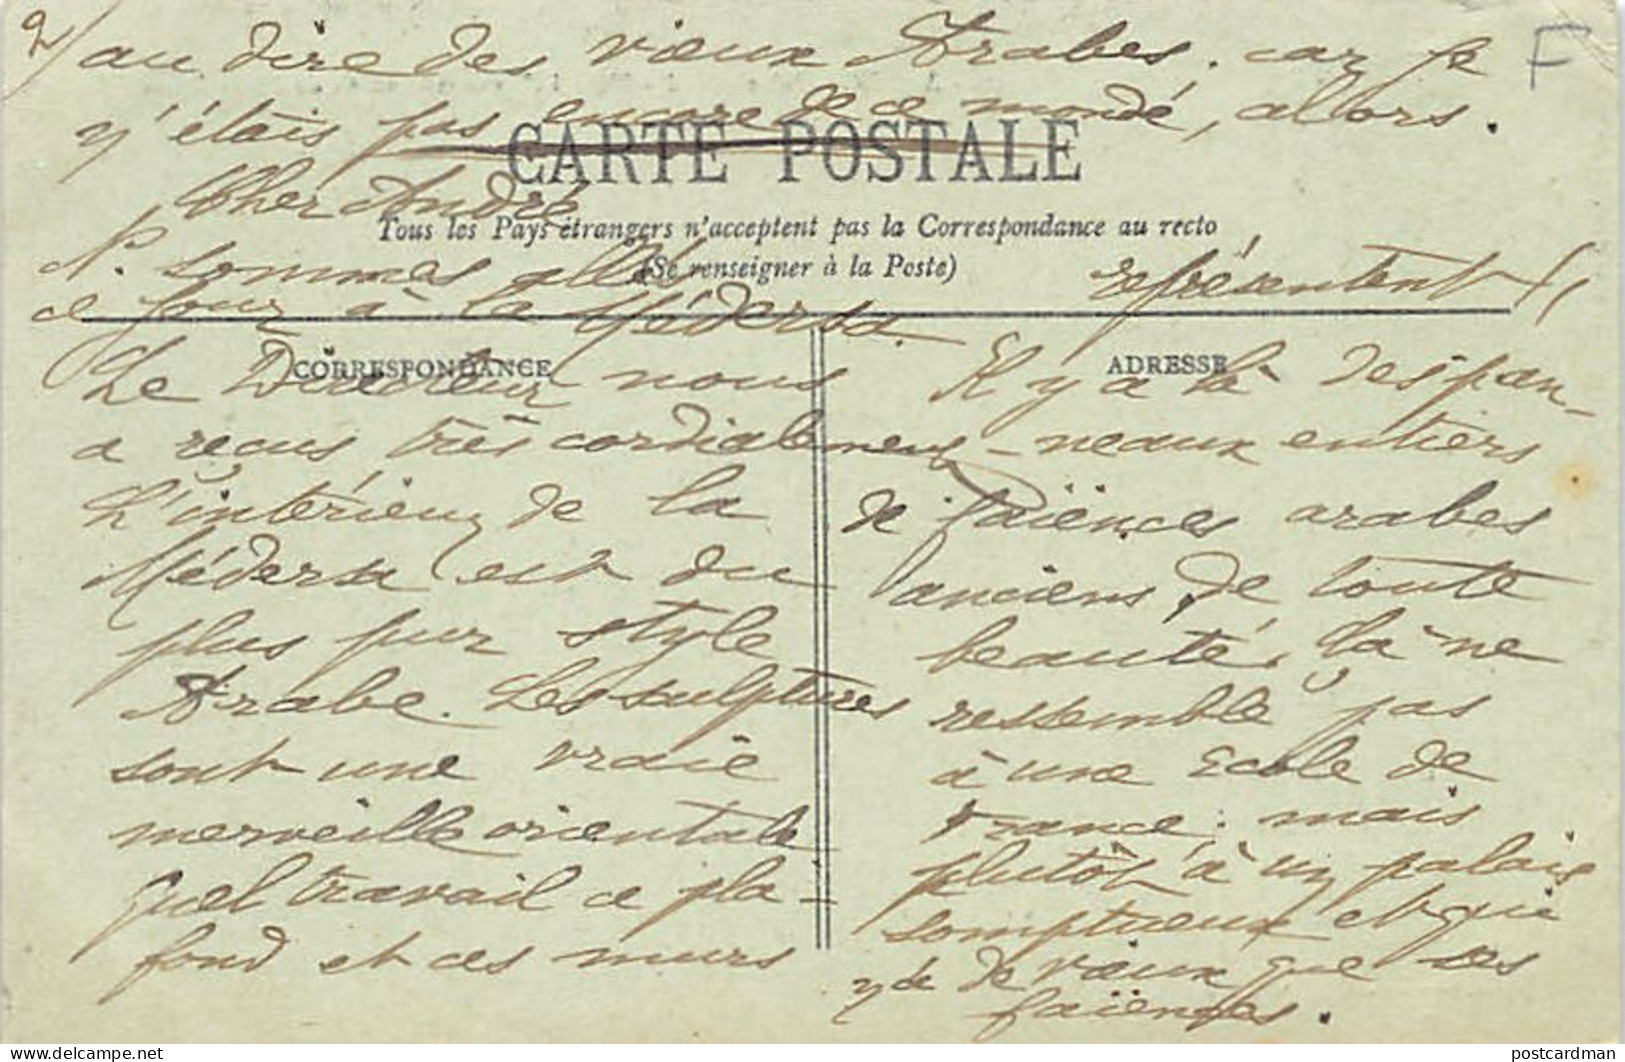 2/
au dire des vieux Arabes. car je
n'étais pas encore de ce monde, alors.
F
CARTE POSTALE
Cher André
Tous les Pays étrangers n'acceptent pas la Correspondance au recto
(Se renseigner à la Poste)
N. sommes allés
ce jour à la Médersa.
CORRESPONDANCE
Le Directeur nous
a reçus très cordialement
L'intérieur de la
Médersa est du
plus pur style
Arabe. Les sculptures
sont une vraie
merveille orientale
Quel travail ce pla-
fond et ces murs
représentent
ADRESSE
Il y a là des pan-
neaux entiers
de faïences arabes
anciens, de toute
beauté. Là ne
ressemble pas
à une Ecole de
France; mais
plutôt à un palais
somptueux et qui
de vieux que ses
faïences.
postcardman